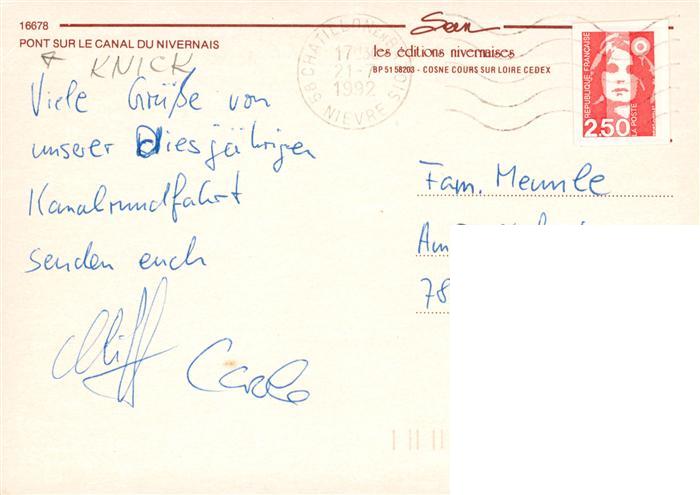 16678
PONT SUR LE CANAL DU NIVERNAIS
KNICK
les éditions nivernaises
BP 51 58203 - COSNE COURS SUR LOIRE CEDEX
58 CHATILLON EN
17H
21-7
1992
NIEVRE
REPUBLIQUE FRANÇAISE
2,50
LA POSTE
Viele Grüße von
unserer Diesjährigen
Kanalrundfahrt
senden euch
Carlo
Fam.
Am
78